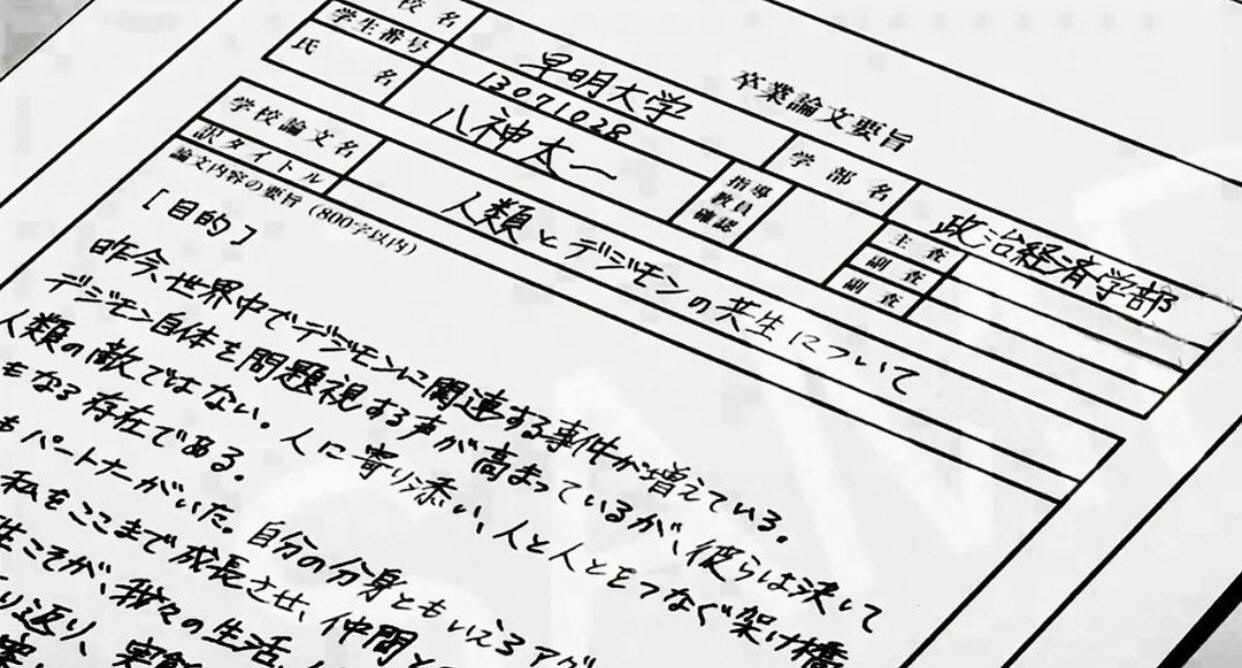 卒業論文要旨
校名 早明大学 学部名 政治経済学部
学生番号 13071028 主査
氏名 八神太一 指導教員確認 副査
副査
学校論文名 人類とデジモンの共生について
訳タイトル
論文内容の要旨（800字以内）
[目的]
昨今、世界中でデジモンに関連する事件が増えている。
デジモン自体を問題視する声が高まっているが、彼らは決して
人類の敵ではない。人に寄り添い、人と人とをつなぐ架け橋
もなる存在である。
もパートナーがいた。自分の分身ともいえるアグ
私をここまで成長させ、仲間と
生こそが、我々の生活
り返り、実
案